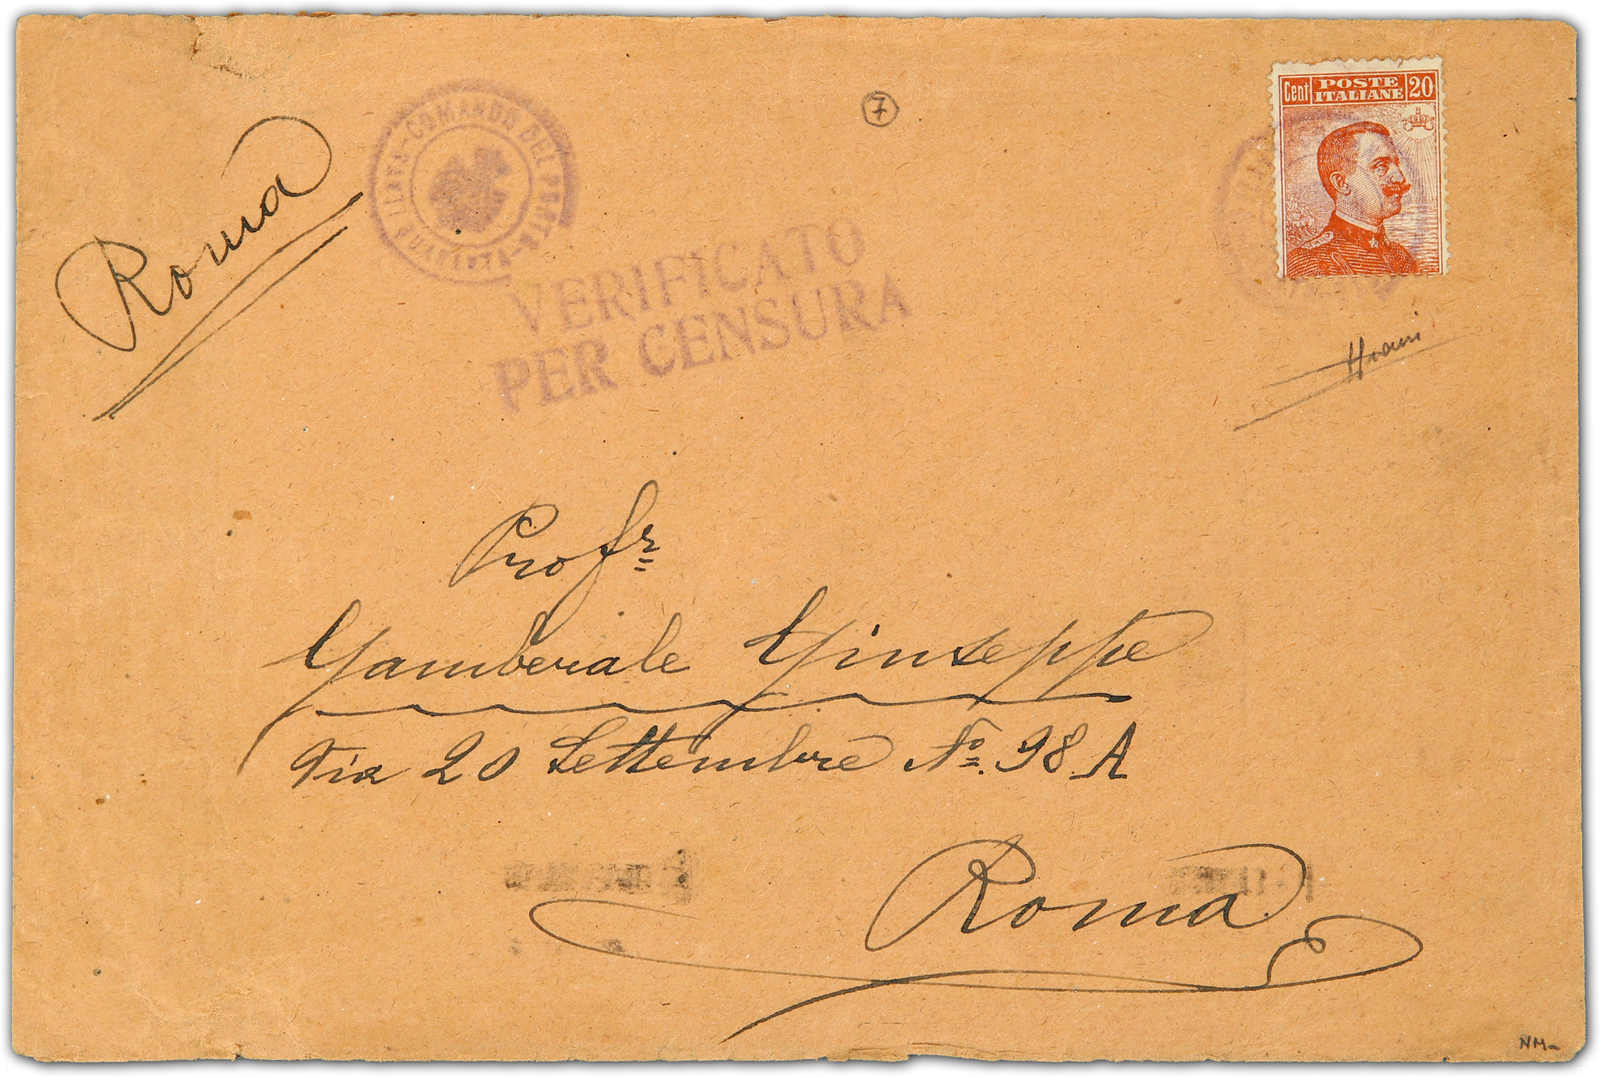 Roma
COMANDO DEL PORTO
7
Cent POSTE ITALIANE 20
VERIFICATO
PER CENSURA
Prof.r
Gamberale Giuseppe
Via 20 Settembre No. 98 A
Roma
NM